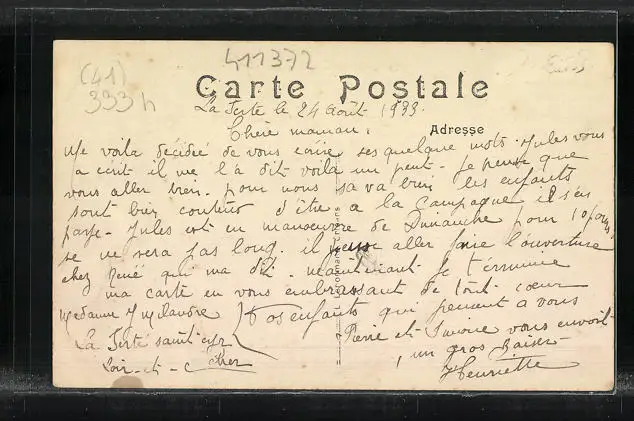 411372
(41)
333 h
Carte Postale
La Ferte le 24 Août 1933.
Adresse
Chere maman.
Me voila décidée de vous écrire ses quelque mots. Jules vous
a écrit il me l'a dit voila un peut. Je pense que
vous aller bien. pour nous sa va bien les enfants
sont bien content d'être a la campagne il s'en
passe. Jules est en manoeuvre de Dimanche pour 10 jours
se ne sera pas long. il pense aller faire l'ouverture
chez René qui ma dit. maintenant Je termine
ma carte en vous embrassant de tout coeur
Vos enfants qui pensent a vous
Pierre et vous envoit
un gros Baiser
Henriette
Madame
La Ferté saint cyr
Loir-et-Cher